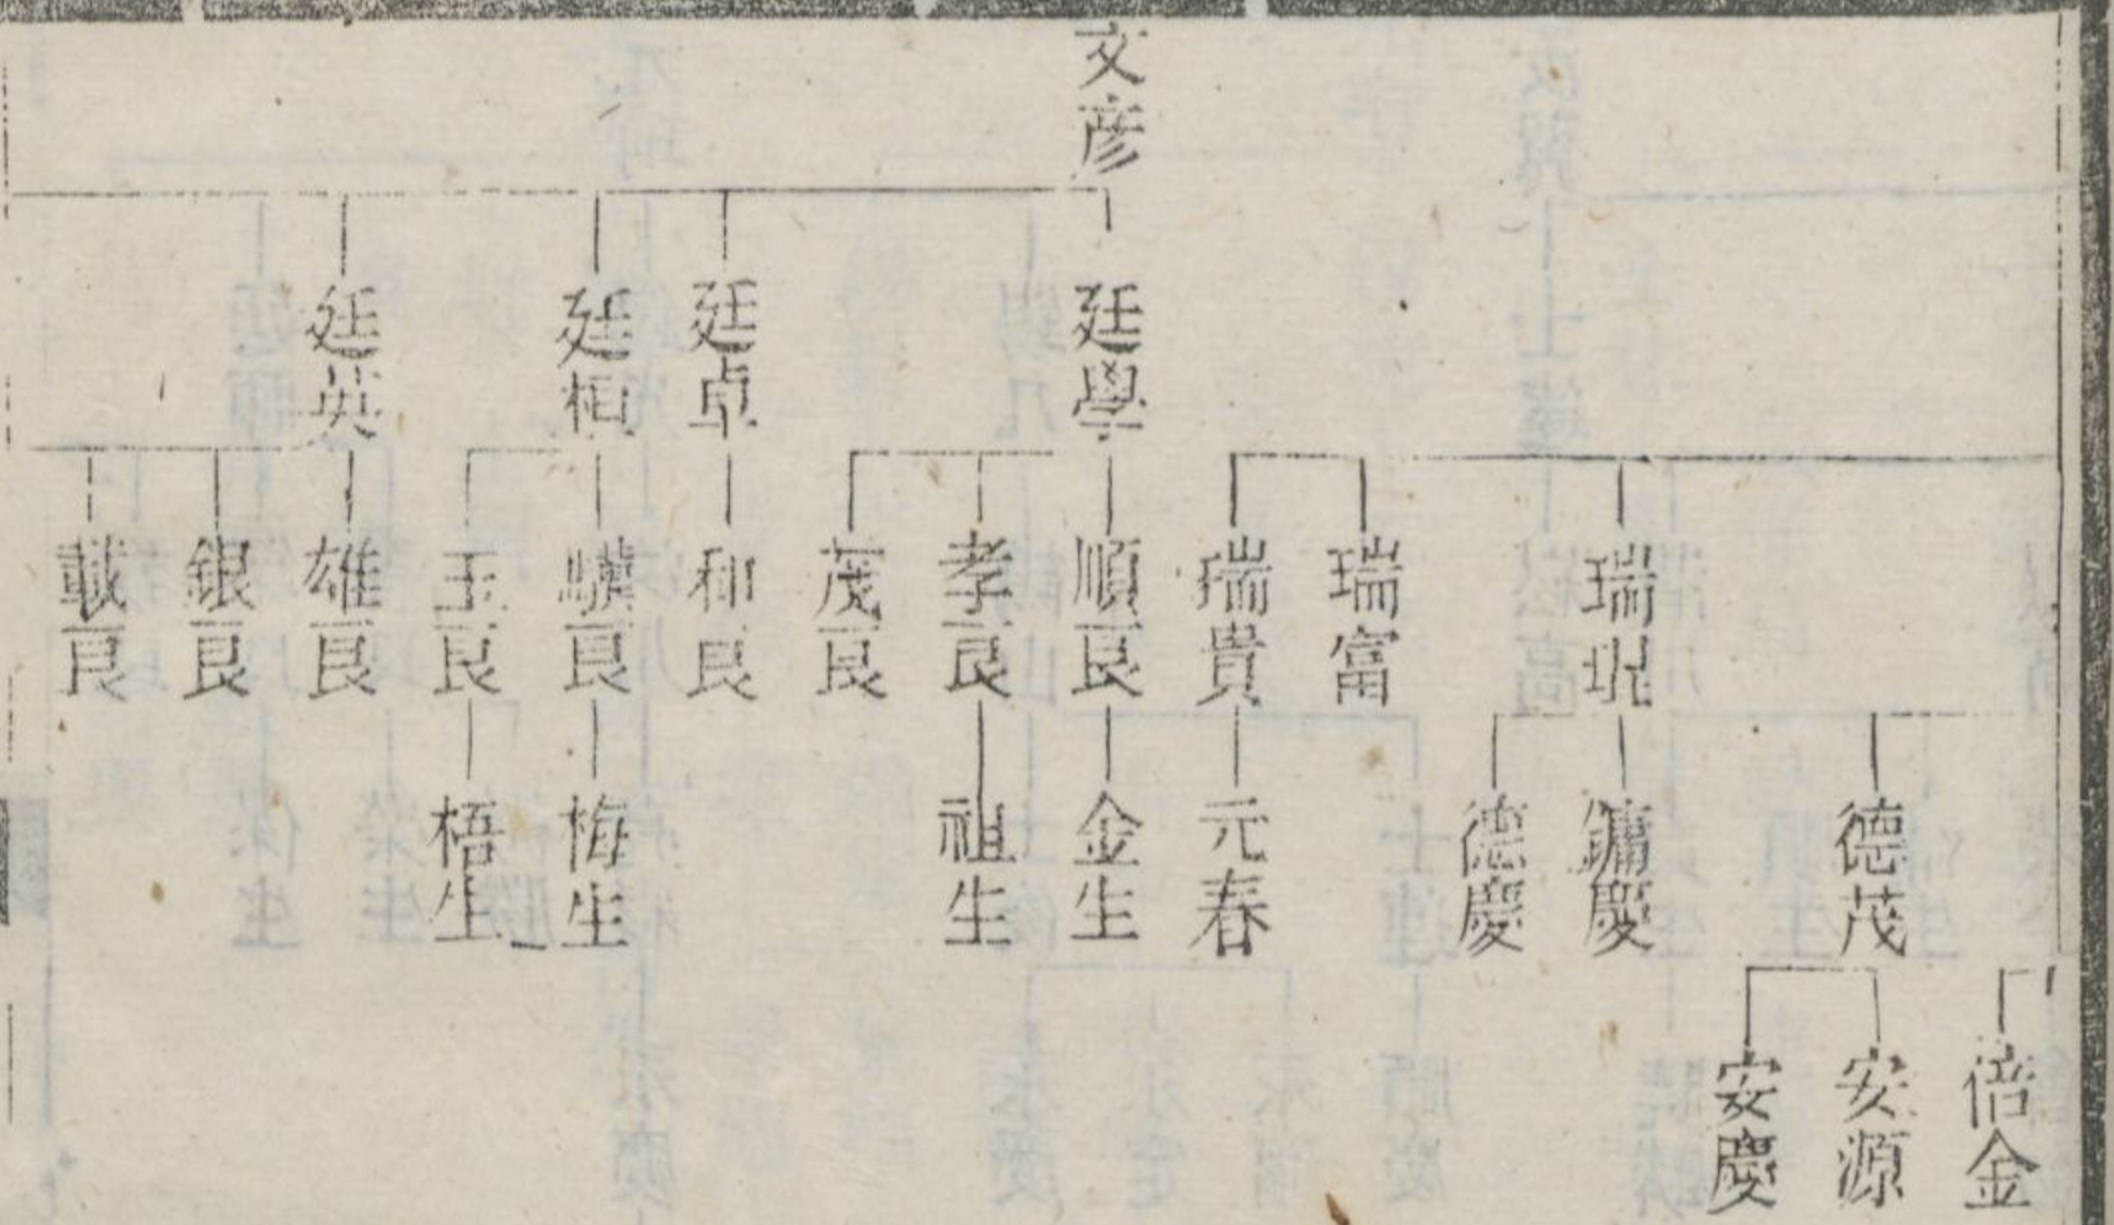 文彦
廷學
廷卓
廷桓
廷英
瑞琨
瑞富
瑞貴
順良
孝良
茂良
和良
良
玉良
雄良
銀良
載良
德茂
鏞慶
德慶
元春
金生
祖生
梅生
梧生
倍金
安源
安慶